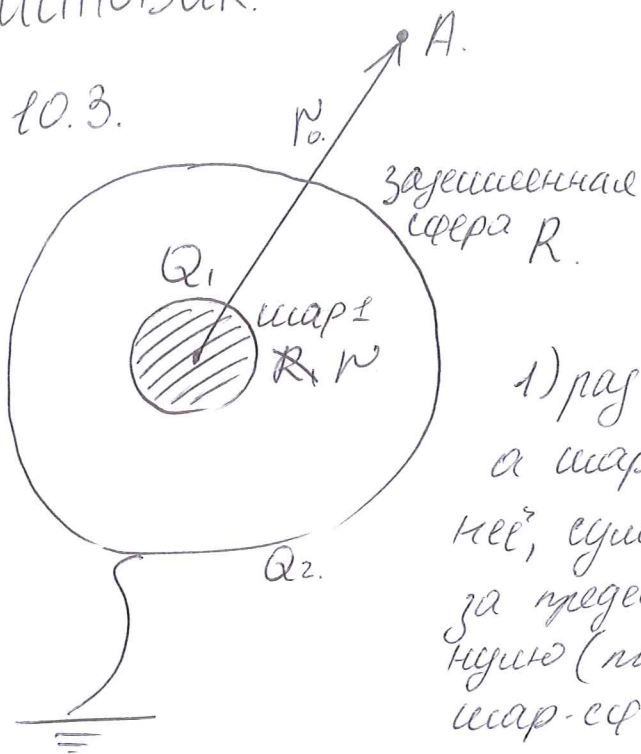 10.3.
A.
r₀.
заземленная
сфера R.
Q₁
шар 1
r
Q₂.
1) раз
а шар
неё,
за преде
нулю (
шар-сф